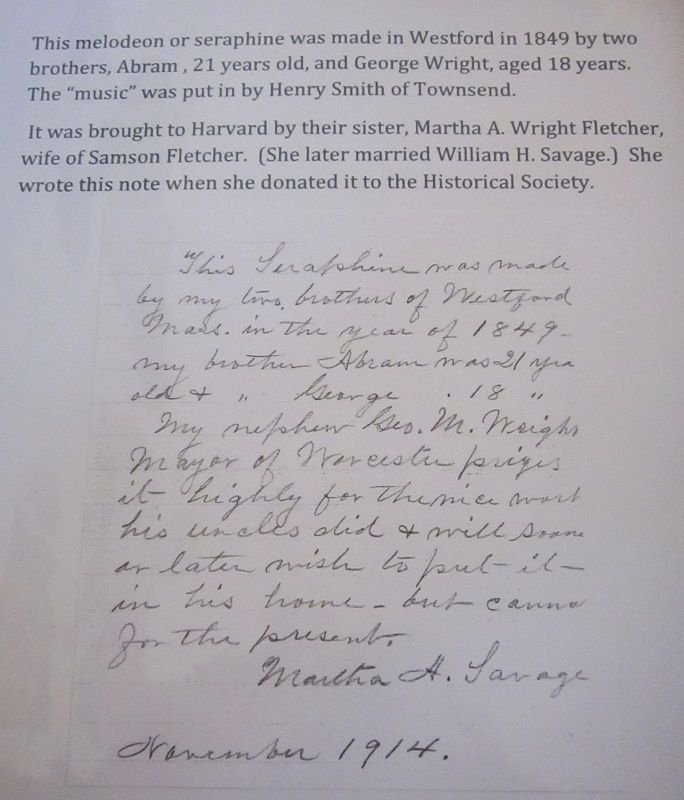 This melodeon or seraphine was made in Westford in 1849 by two
brothers, Abram , 21 years old, and George Wright, aged 18 years.
The “music” was put in by Henry Smith of Townsend.
It was brought to Harvard by their sister, Martha A. Wright Fletcher,
wife of Samson Fletcher.  (She later married William H. Savage.)  She
wrote this note when she donated it to the Historical Society.
"This Seraphine was made
by my two brothers of Westford
Mass. in the year of 1849-
my brother Abram was 21 yrs
old + " George . 18 "
My nephew Geo. M. Wright
Mayor of Worcester prizes
it highly for the nice work
his uncles did & will soone
or later wish to put it
in his home - but canno
for the present.
Martha A. Savage
November 1914.